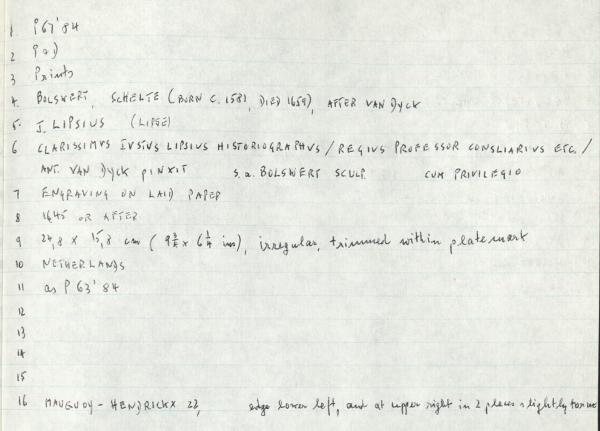 1 P67'84
2 P(a)
3 Prints
4. BOLSWERT, SCHELTE (BORN C. 1581, DIED 1659), AFTER VAN DYCK
5. J. LIPSIUS (LIPSE)
6 CLARISSIMVS IVSTVS LIPSIVS HISTORIOGRAPHVS / REGIVS PROFESSOR CONSLIARIVS ETC. /
ANT. VAN DYCK PINXIT S. a. BOLSWERT SCULP. CUM PRIVILEGIO
7 ENGRAVING ON LAID PAPER
8 1645 OR AFTER
9 24,8 x 15,8 cm ( 9 3/4 x 6 1/4 ins), irregular, trimmed within platemark
10 NETHERLANDS
11 as P 63'84
12
13
14
15
16 MAUQUOY-HENDRICKX 22, edge lower left, and at upper right in 2 places slightly torn